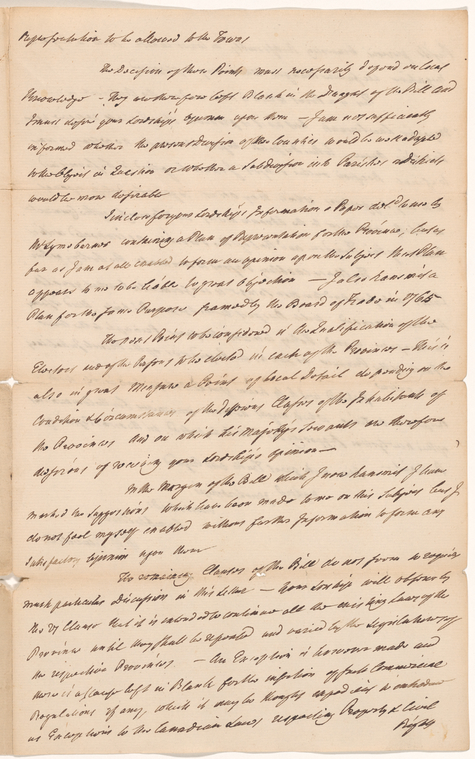 Representation to be allowed to the Towns
The Decision of these Points must necessarily depend on local
Knowledge - They are therefore left Blank in the Draught of the Bill and
I must desire your Lordship's opinion upon them - I am not sufficiently
informed whether the present division of the Counties would be well adapted
to the Object in Question or whether a Subdivision into Parishes or districts
would be more desirable
I inclose for your Lordship's Information a Paper del.d to me by
Mr Lymeburner containing a Plan of Representation for the Province, but as
far as I am at all enabled to form an opinion upon the Subject that Plan
appears to me to be liable to great Objection - I also transmit a
Plan for the same Purpose framed by the Board of Trade in
The next Point to be considered is the Qualification of the
Electors and of the Persons to be elected in each of the Provinces - this is
also in great Measure a Point of local Detail depending on the
Condition & Circumstances of the different Classes of the Inhabitants of
the Provinces and on which his Majesty's Servants are therefore
desirous of receiving your Lordship's Opinion -
In the Margin of the Bill which I now transmit I have
marked the suggestions which have been made to me on this Subject but I
do not feel myself enabled without further Information to form any
satisfactory Opinion upon them
The remaining Clauses of the Bill do not seem to require
much particular Discussion in this Letter - Your Lordship will observe by
the Clause that it is intended to continue all the existing Laws of the
Province until they shall be repealed and varied by the Legislatures of
the respective Provinces - An Exception is however made and
there is a clause left in Blank for the insertion of such Commercial
Regulations if any, which it may be thought expedient to introduce
as Exceptions to the Canadian Laws respecting Property & Civil
Rights